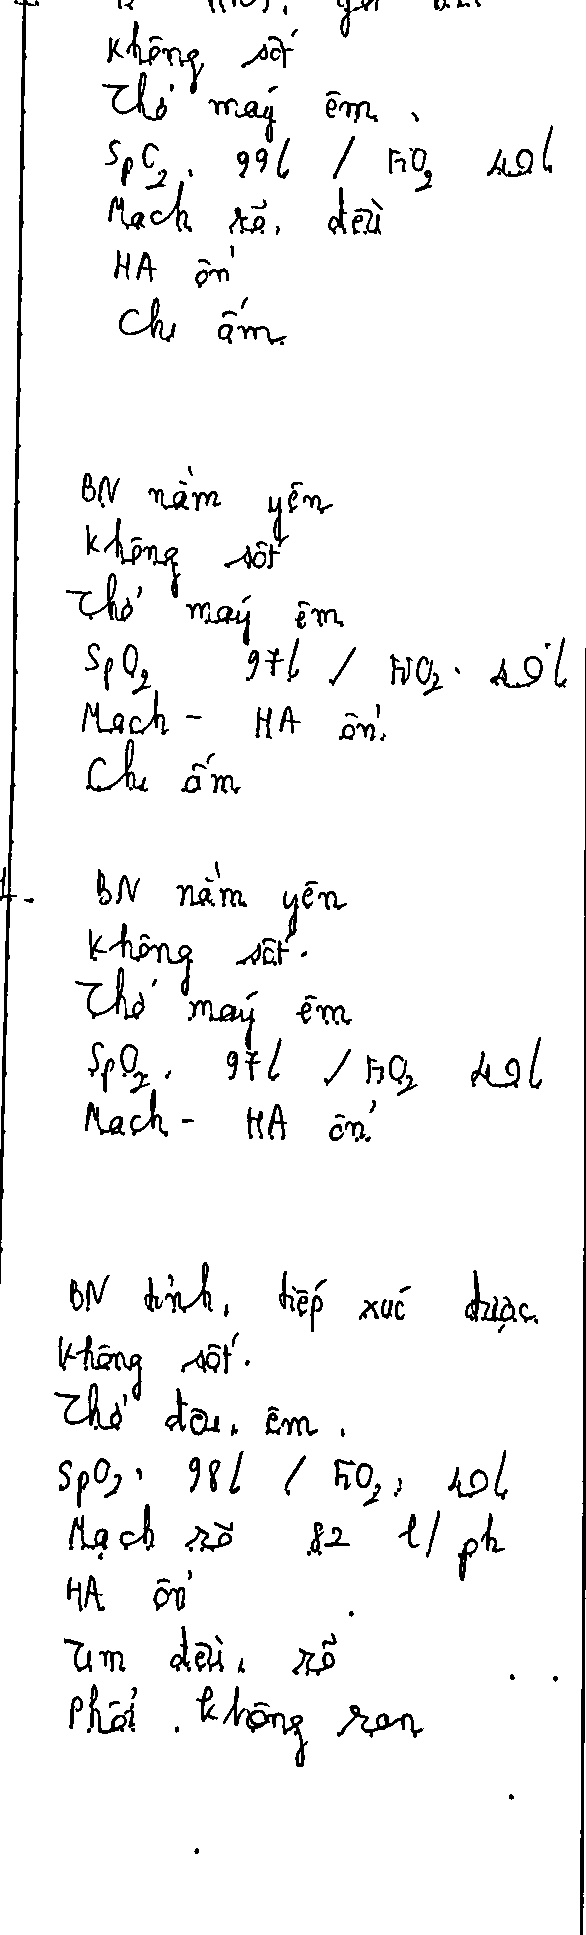 Không sốt
Thở máy êm.
SpO2. 99% / FiO2 40%
Mạch rõ, đều
HA ổn
Chi ấm.
BN nằm yên
Không sốt
Thở máy êm
SpO2 97% / FiO2. 40%
Mạch - HA ổn.
Chi ấm
BN nằm yên
Không sốt.
Thở máy êm
SpO2. 97% / FiO2 40%
Mạch - HA ổn
BN tỉnh, tiếp xúc được
Không sốt.
Thở đều, êm.
SpO2, 98% / FiO2, 40%
Mạch rõ 82 l/ph
HA ổn
Tim đều, rõ
Phổi. không ran